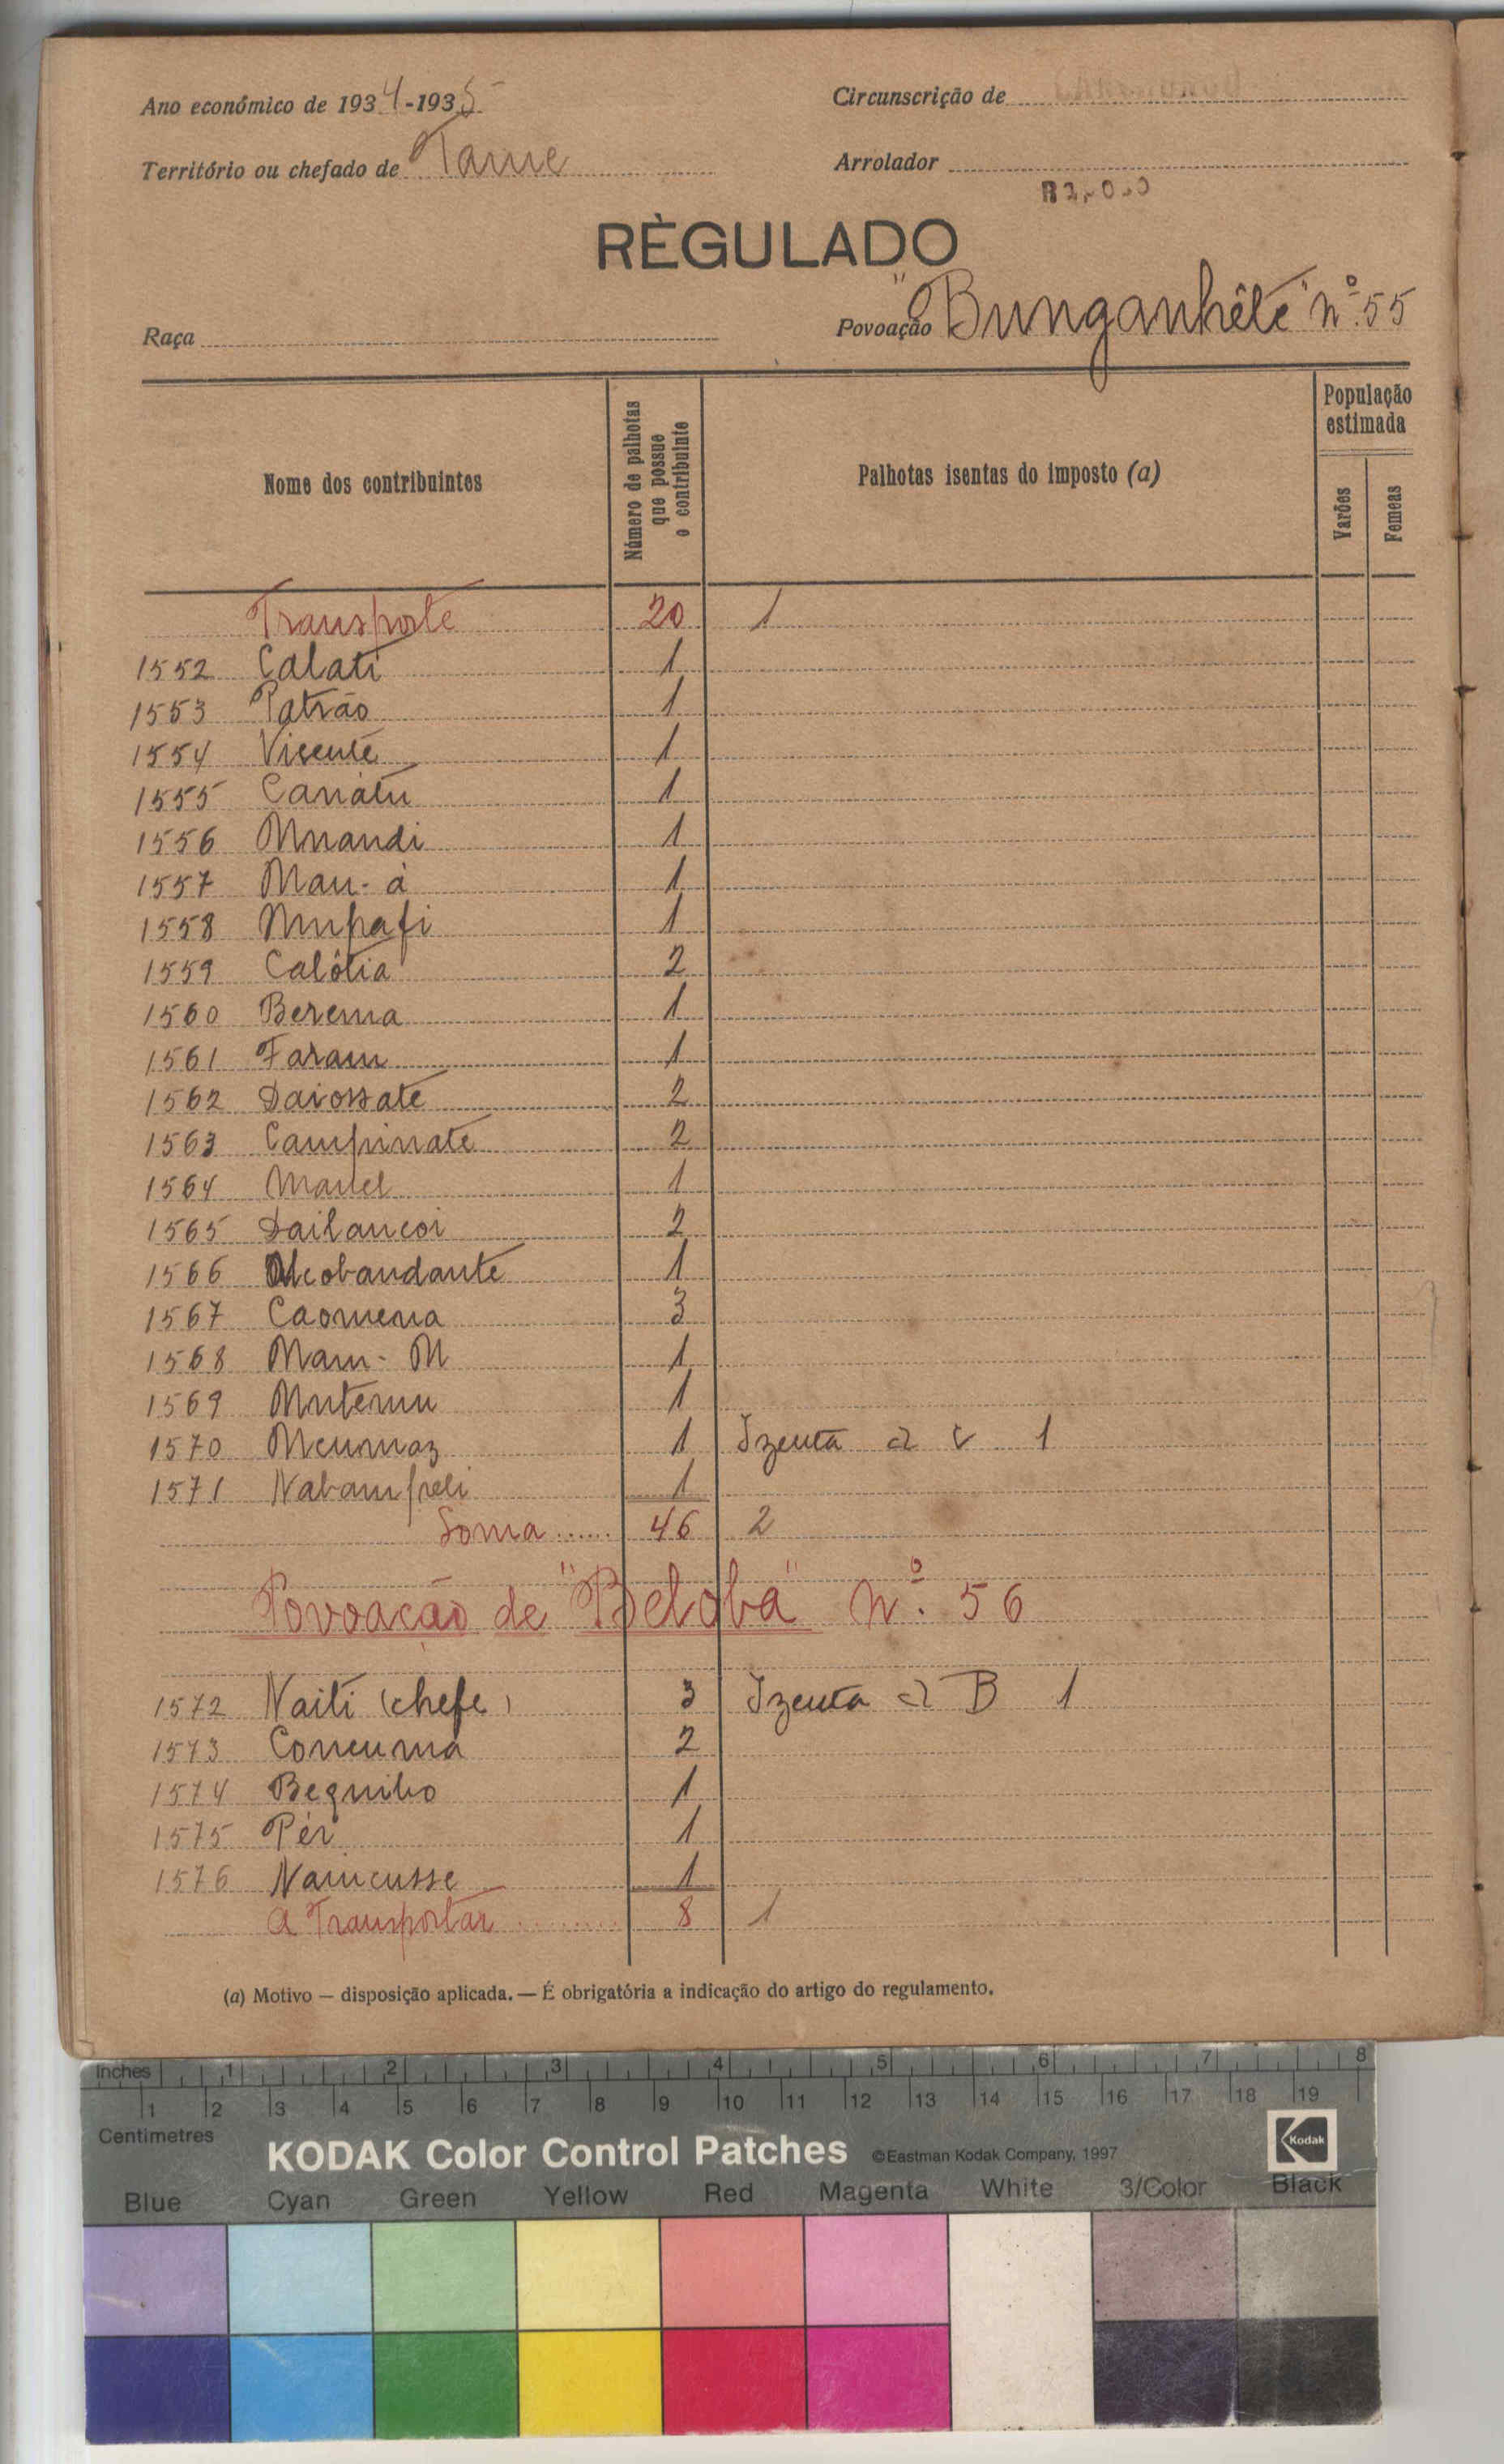 Ano económico de 1934-1935
Circunscrição de
Território ou chefado de Tame
Arrolador
RÈGULADO
Raça
Povoação "Bunganhêté" nº 55
Nome dos contribuintes
Número de palhotas que possue o contribuinte
Palhotas isentas do imposto (a)
População estimada
Varões
Femeas
Transporte 20 1
1552 Calati 1
1553 Patrão 1
1554 Vicente 1
1555 Canàtu 1
1556 Mnandi 1
1557 Mau-à 1
1558 Mupafi 1
1559 Calôtia 2
1560 Berema 1
1561 Faram 1
1562 Daiossate 2
1563 Campinate 2
1564 Manel 1
1565 Dailancoi 2
1566 Alcobandante 1
1567 Caomena 3
1568 Mam-M 1
1569 Mntemu 1
1570 1 Izenta 1
1571 1
Soma ...... 46 2
Povoação de "Beloba" Nº. 56
1572 Naiti (chefe) 3 Izenta B 1
1573 Concumá 2
1574 Bequilo 1
1575 Pér 1
1576 Naincusse 1
A Transportar 8 1
(a) Motivo — disposição aplicada. — É obrigatória a indicação do artigo do regulamento.
Inches 1 2 3 4 5 6 7 8
1 2 3 4 5 6 7 8 9 10 11 12 13 14 15 16 17 18 19
Centimetres
KODAK Color Control Patches ©Eastman Kodak Company, 1997
Kodak
Blue Cyan Green Yellow Red Magenta White 3/Color Black